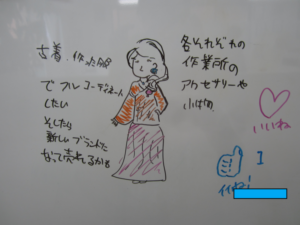 古着、作った服
でフルコーディネート
したい
そしたら
新しいブランドに
なって売れるかも
各それぞれの
作業所の
アクセサリーや
小物
いいね
イイね!